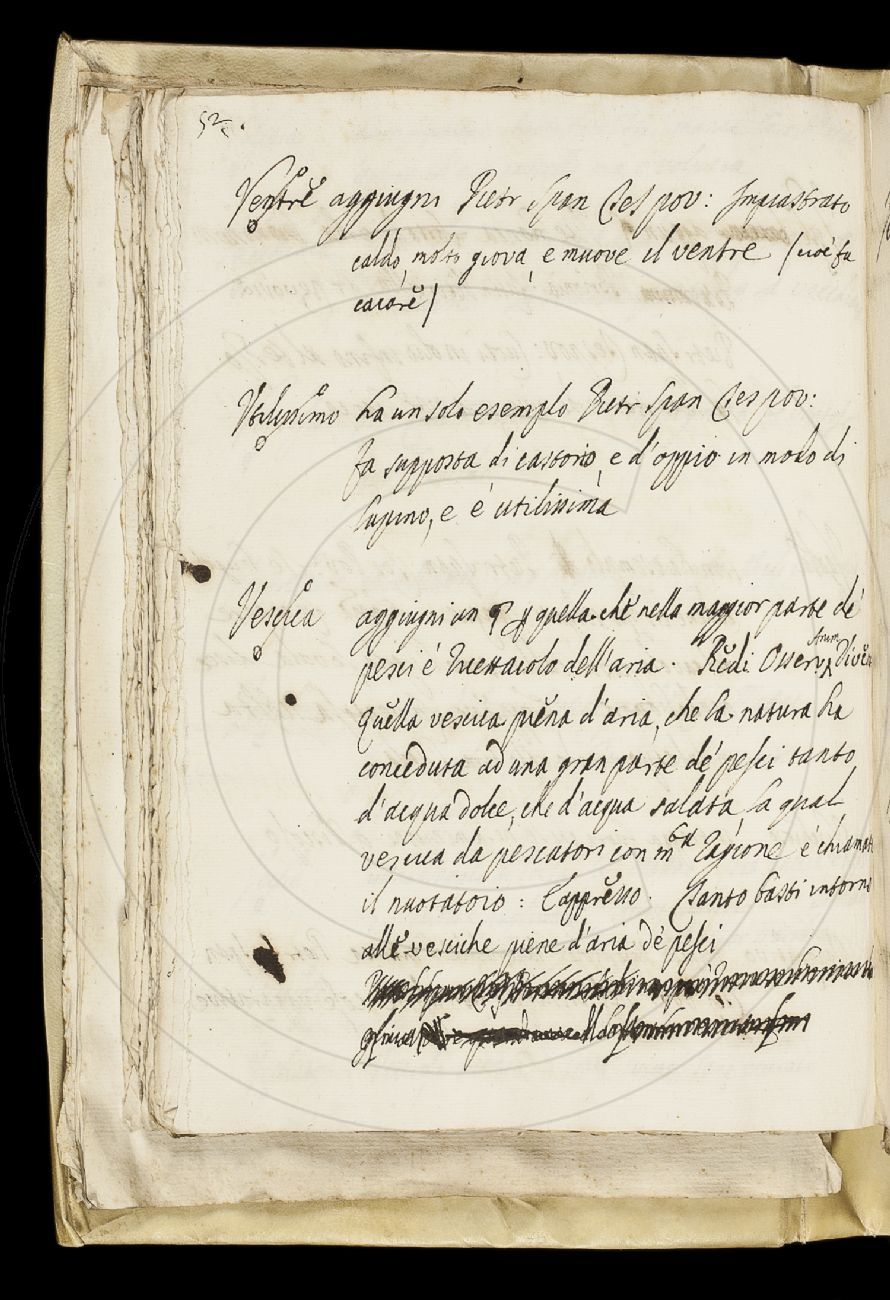 52.
Ventre aggiugni Pietr Span Tes pov: Impiastrato
caldo, molto giova, e muove il ventre (cioè fa
cacare)
Utilissimo ha un solo esemplo Pietr Span Tes pov:
fa supposta di castorio, e d'oppio in modo di
lupino, e è utilissima
Vescica aggiugni un quella che nella maggior parte de'
pesci è ricettacolo dell'aria. Redi Osserv. Anim Viven
Quella vescica piena d'aria, che la natura ha
conceduta ad una gran parte de' pesci tanto
d'acqua dolce, che d'acqua salata, la qual
vescica da pescatori con m.ta ragione è chiamata
il nuotatoio: E appresso. Tanto basti intorno
alle vesciche piene d'aria de' pesci